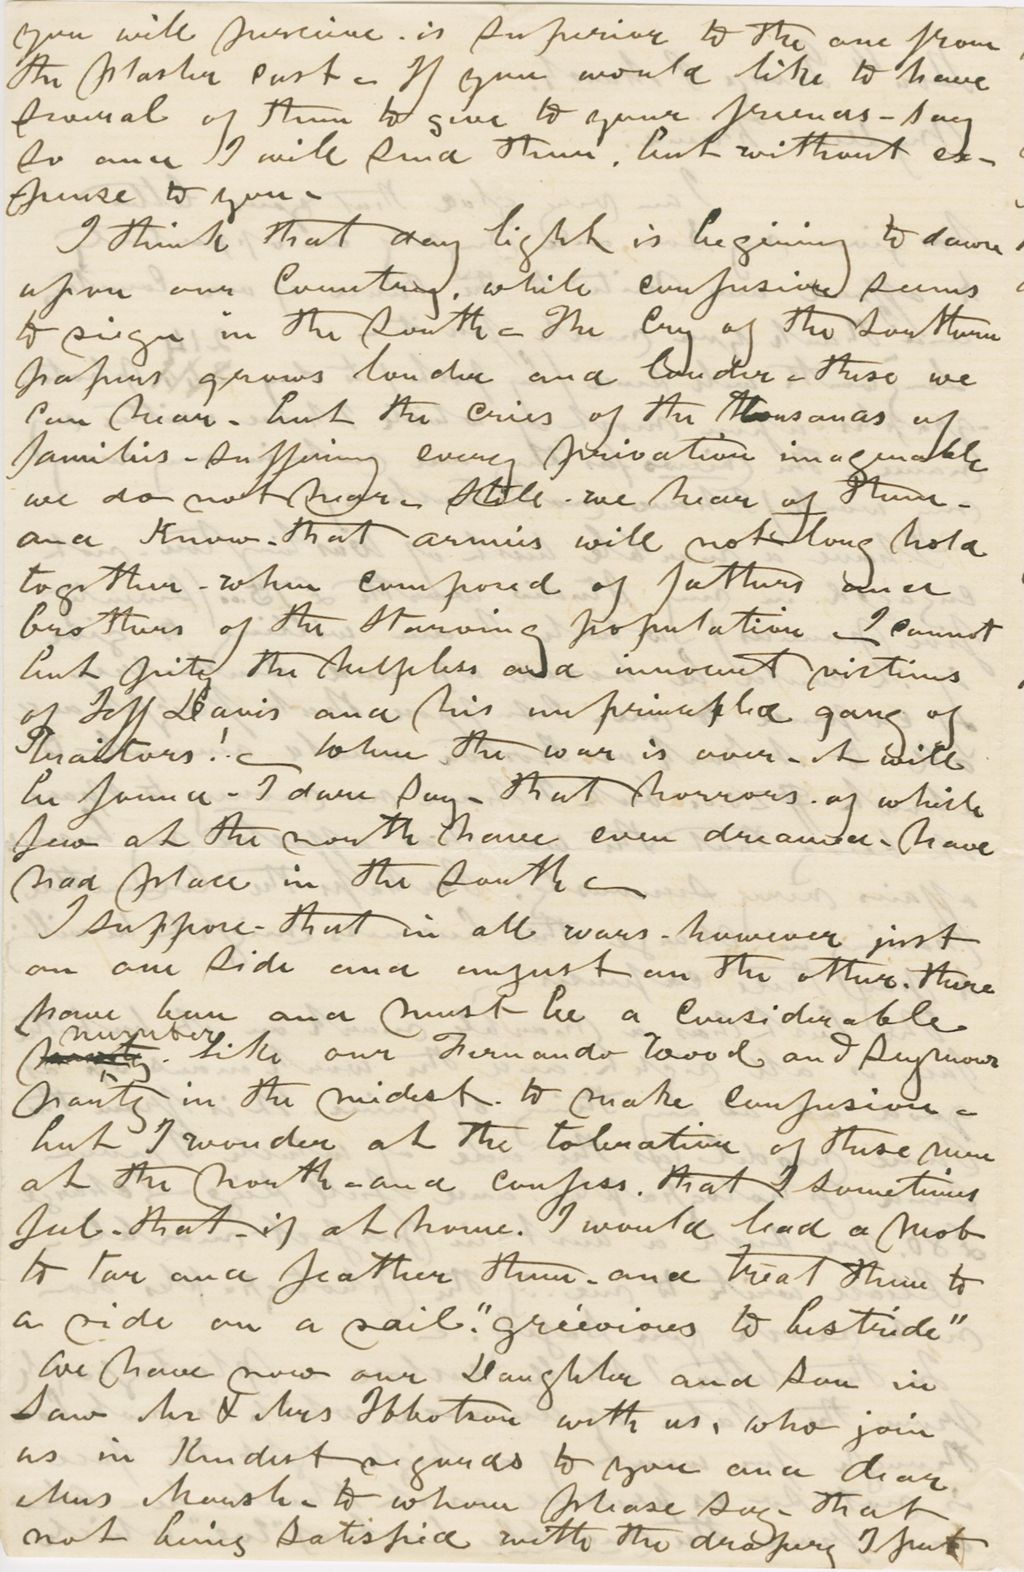 you will perceive - is superior to the one from
the plaster cast - If you would like to have
several of them to give to your friends - say
so and I will send them, but without ex-
pense to you -
I think that day light is begining to dawn
upon our Country, while confusion seems
to reign in the South - The Cry of the Southern
papers grows louder and louder - these we
can hear - but the cries of the thousands of
families - suffering every privation imaginable
we do not hear - Still - we hear of them -
and Know - that armies will not long hold
together - when composed of fathers and
brothers of the Starving population - I cannot
but pity the helpless and innocent victims
of Jeff Davis and his unprincipled gang of
Traitors! - When the war is over - it will
be found - I dare Say - that horrors - of which
few at the north have even dreamed - have
had place in the South -
I suppose - that in all wars - however just
on one side and unjust on the other - there
have been and must be a considerable
number
party - like our Fernando Wood and Seymour
party in the midest - to make confusion -
but I wonder at the toleration of these men
at the North - and confess, that I sometimes
feel - that - if at home, I would lead a mob
to tar and feather them - and treat them to
a ride on a rail - "grieivious to bestride"
We have now our Daughter and Son in
Law Mr & Mrs Ibbotson with us, who join
us in Kindest regards to you and dear
Mrs Marsh - to whom please say - that
not being satisfied with the drapery I put